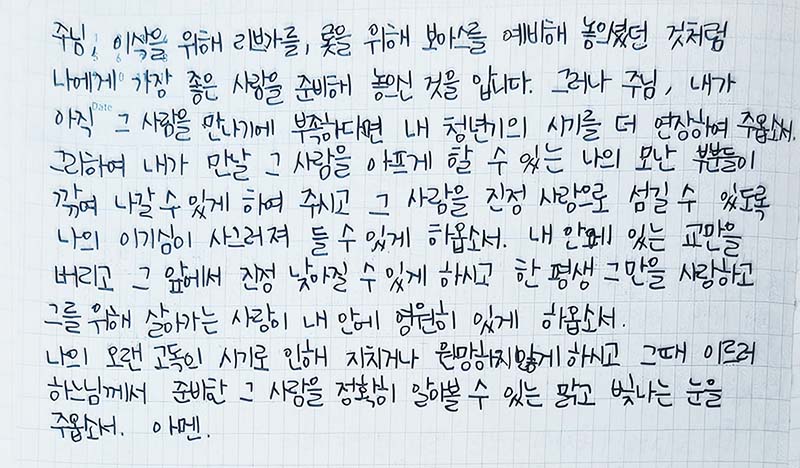 주님, 이삭을 위해 리브가를, 룻을 위해 보아스를 예비해 놓의셨던 것처럼
나에게 가장 좋은 사람을 준비해 놓으신 것을 압니다. 그러나 주님, 내가
Date
아직 그 사람을 만나기에 부족하다면 내 청년기의 시기를 더 연장하여 주옵소서.
그리하여 내가 만날 그 사람을 아프게 할 수 있는 나의 모난 부분들이
깎여 나갈 수 있게 하여 주시고 그 사람을 진정 사랑으로 섬길 수 있도록
나의 이기심이 사그러져 들 수 있게 하옵소서. 내 안에 있는 교만을
버리고 그 앞에서 진정 낮아질 수 있게 하시고 한 평생 그만을 사랑하고
그를 위해 살아가는 사랑이 내 안에 영원히 있게 하옵소서.
나의 오랜 고독의 시기로 인해 지치거나 원망하지않게 하시고 그때 이르러
하느님께서 준비한 그 사람을 정확히 알아볼 수 있는 맑고 빛나는 눈을
주옵소서. 아멘.